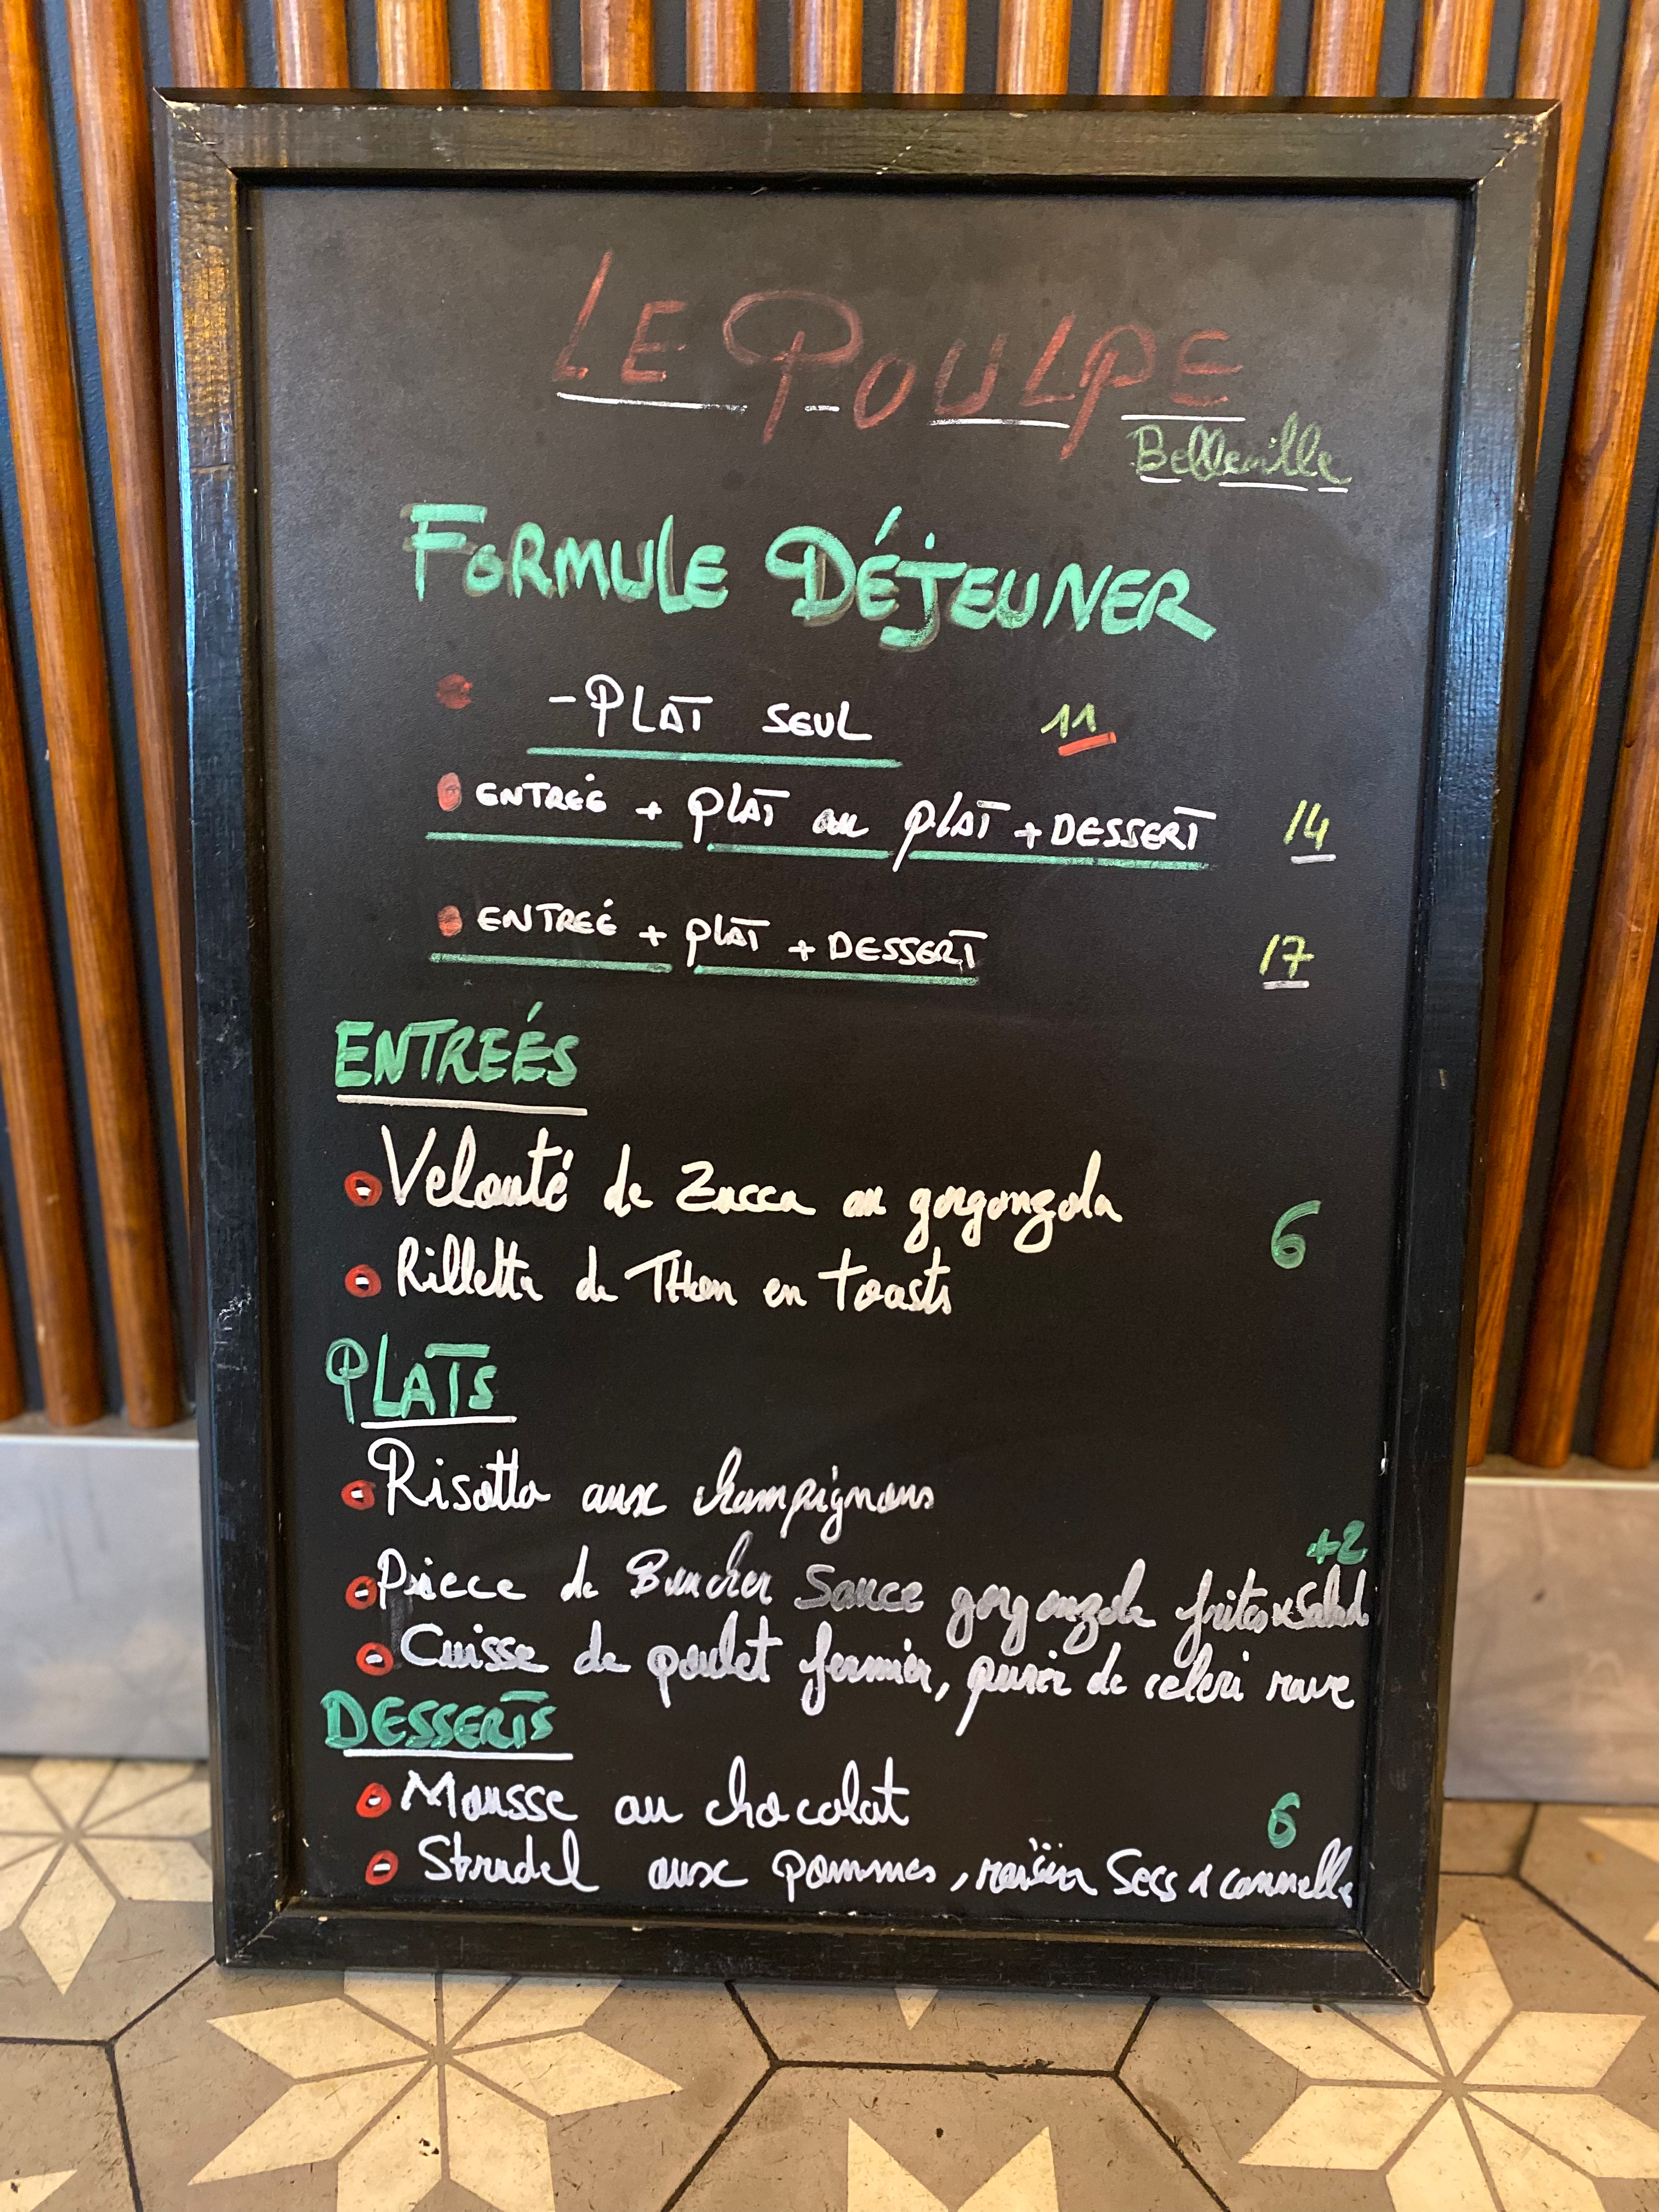 LE POULPE
Belleville
FORMULE DÉJEUNER
- PLAT SEUL 11
ENTREÉ + PLAT ou PLAT + DESSERT 14
ENTREÉ + PLAT + DESSERT 17
ENTREÉS
Velouté de Zucca au gorgonzola
6
Rillette de THon en toasts
PLATS
Risotto aux champignons
+2
Pièce de Boucher Sauce gorgonzola frites & Salade
Cuisse de poulet fermier, purée de celeri rave
DESSERTS
Mousse au chocolat 6
Strudel aux pommes, raisin Secs & cannelle